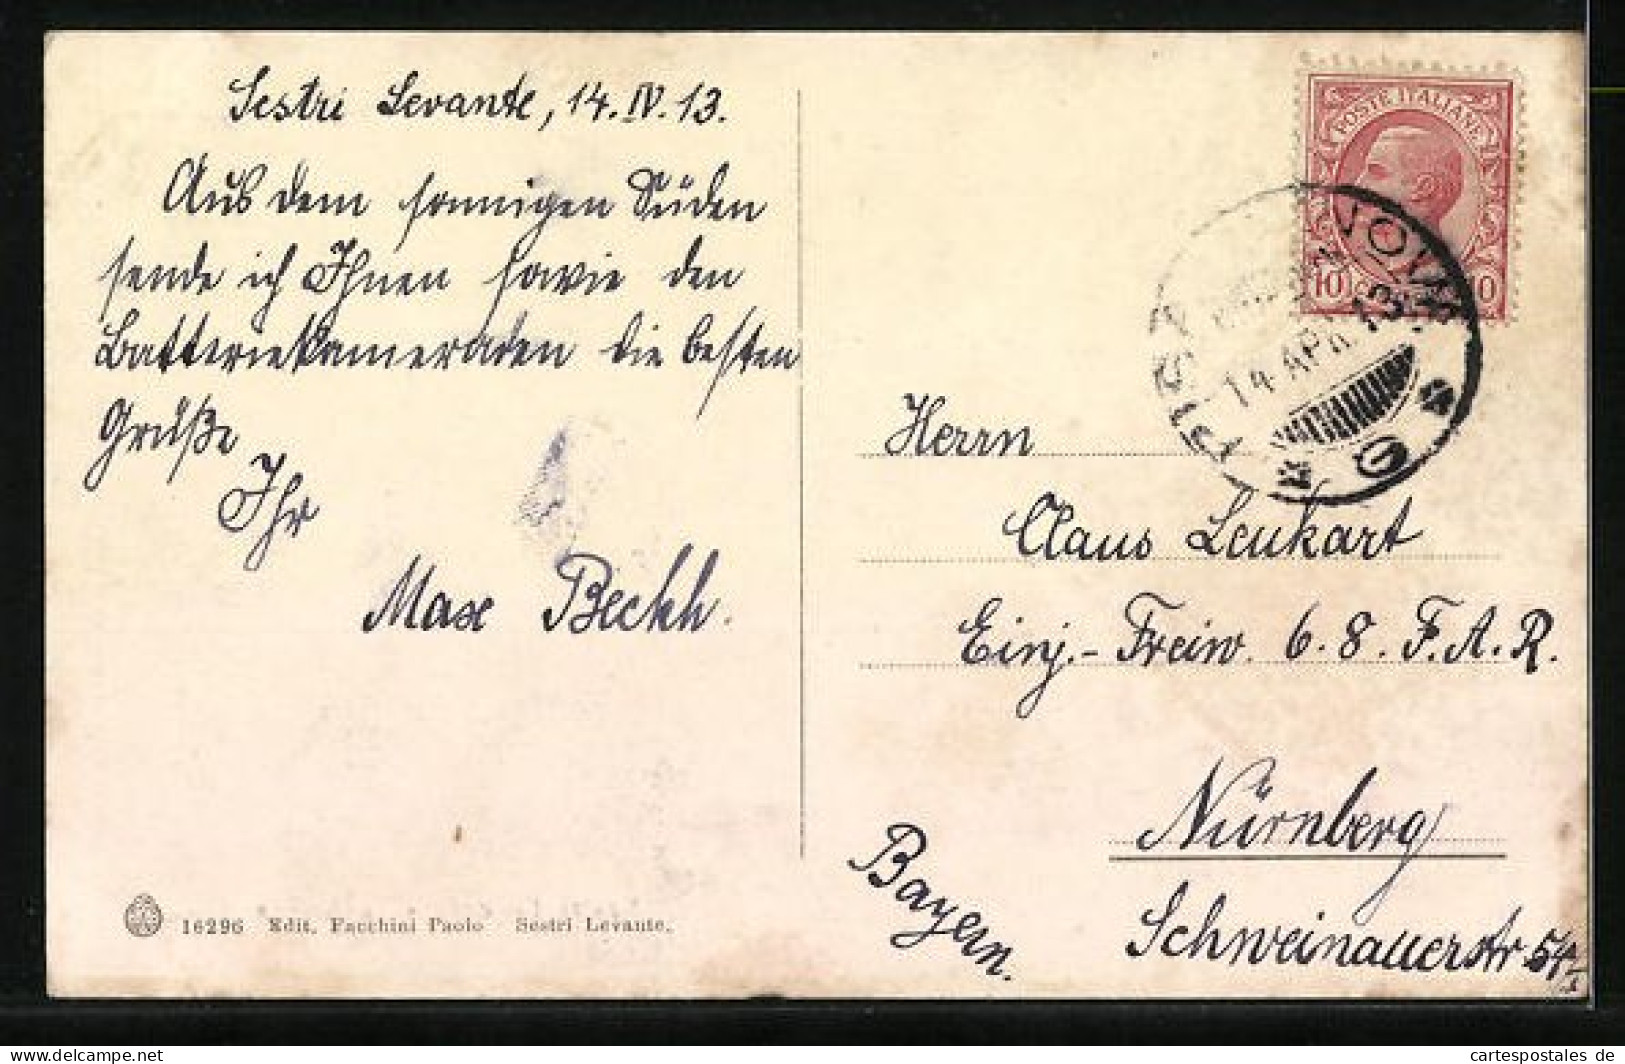 Sestri Levante, 14.IV.13.
Aus dem sonnigen Süden
sende ich Ihnen sowie den
Batteriekameraden die besten
Grüße
Ihr
Max Beckh.
16296 Edit. Facchini Paolo Sestri Levante.
POSTE ITALIANE
10 10
14 APR 13
Herrn
Claus Leukart
Einj.-Freiw. 6. 8. F.A.R.
Nürnberg
Bayern.
Schweinauerstr 54/I
cartespostales de